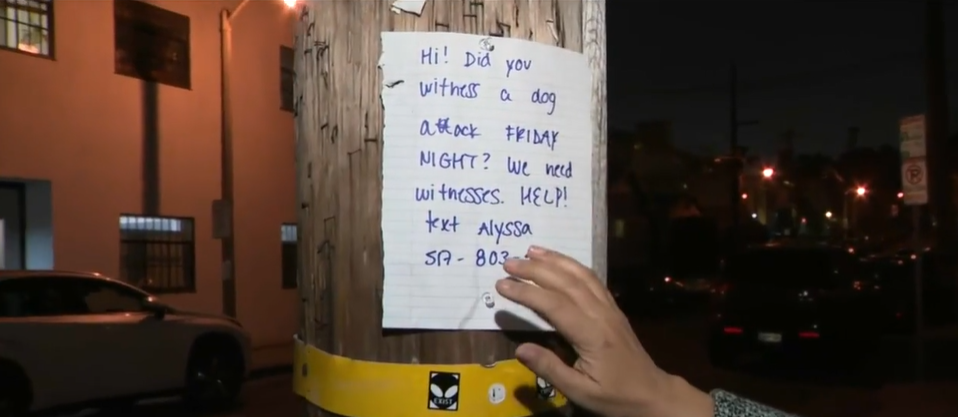 Hi! Did you
witness a dog
attack FRIDAY
NIGHT? We need
witnesses. HELP!
text Alyssa
517- 803-
EXIST